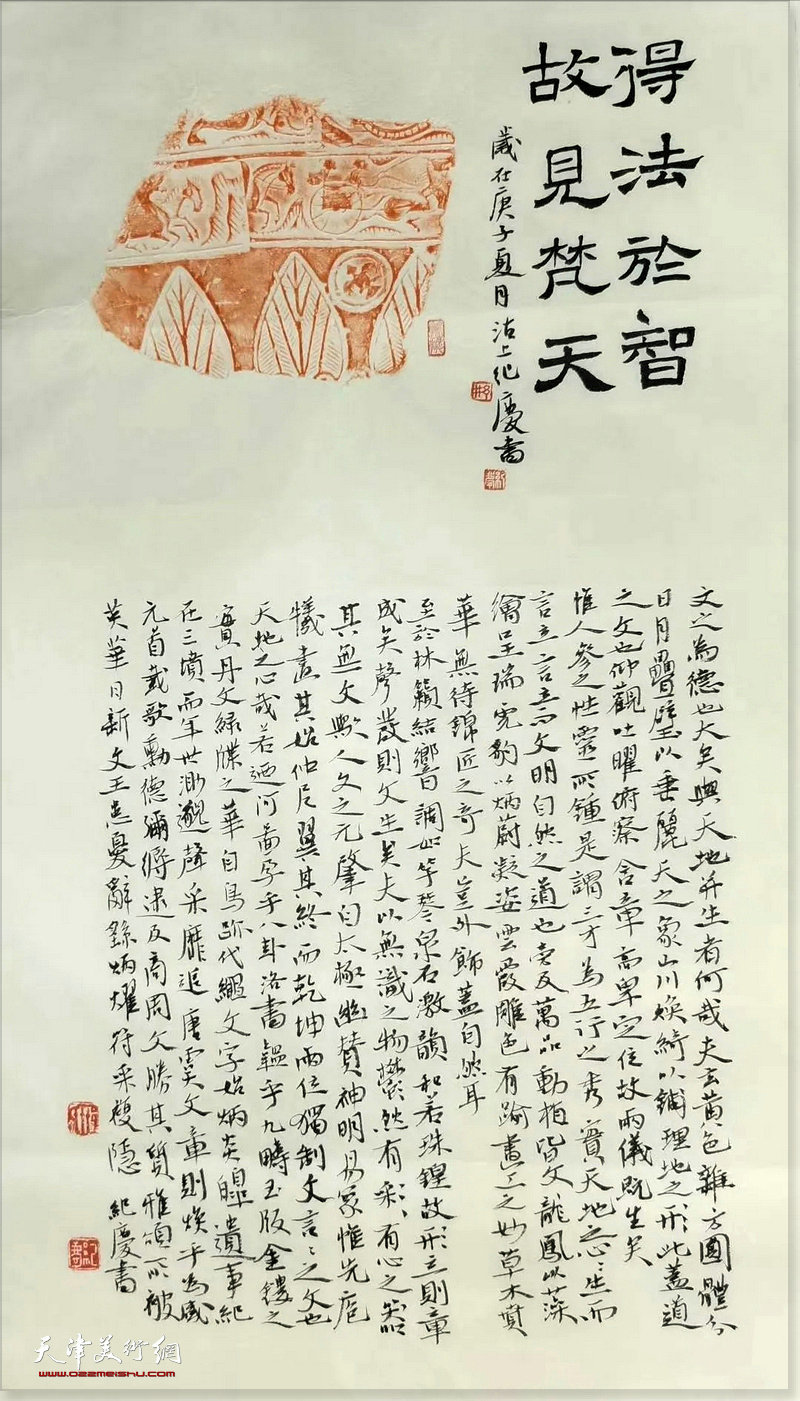 得法於智
故見梵天
歲在庚子夏月沽上紀慶書
文之為德也大矣與天地并生者何哉夫玄黃色雜方圓體分
日月疊璧以垂麗天之象山川煥綺以鋪理地之形此蓋道
之文也仰觀吐曜俯察含章高卑定位故兩儀既生矣
惟人參之性靈所鍾是謂三才為五行之秀實天地之心〻生而
言立言立而文明自然之道也旁及萬品動植皆文龍鳳以藻
繪呈瑞虎豹以炳蔚凝姿雲霞雕色有踰畫工之妙草木賁
華無待錦匠之奇夫豈外飾蓋自然耳
至於林籟結響調如竽琴泉石激韻和若珠鍠故形立則章
成矣聲發則文生矣夫以無識之物鬱然有彩有心之器
其無文歟人文之元肇自太極幽贊神明易象惟先庖
犧畫其始仲尼翼其終而乾坤兩位獨制文言〻之文也
天地之心哉若迺河圖孕乎八卦洛書韞乎九疇玉版金鏤之
實丹文綠牒之華自鳥跡代繩文字始炳炎皞遺事紀
在三墳而年世渺邈聲采靡追唐虞文章則煥乎為盛
元首載歌勳德彌縟逮及商周文勝其質雅頌所被
英華日新文王患憂辭繇炳燿符采複隱 紀慶書
天津美術網
www.022meishu.com